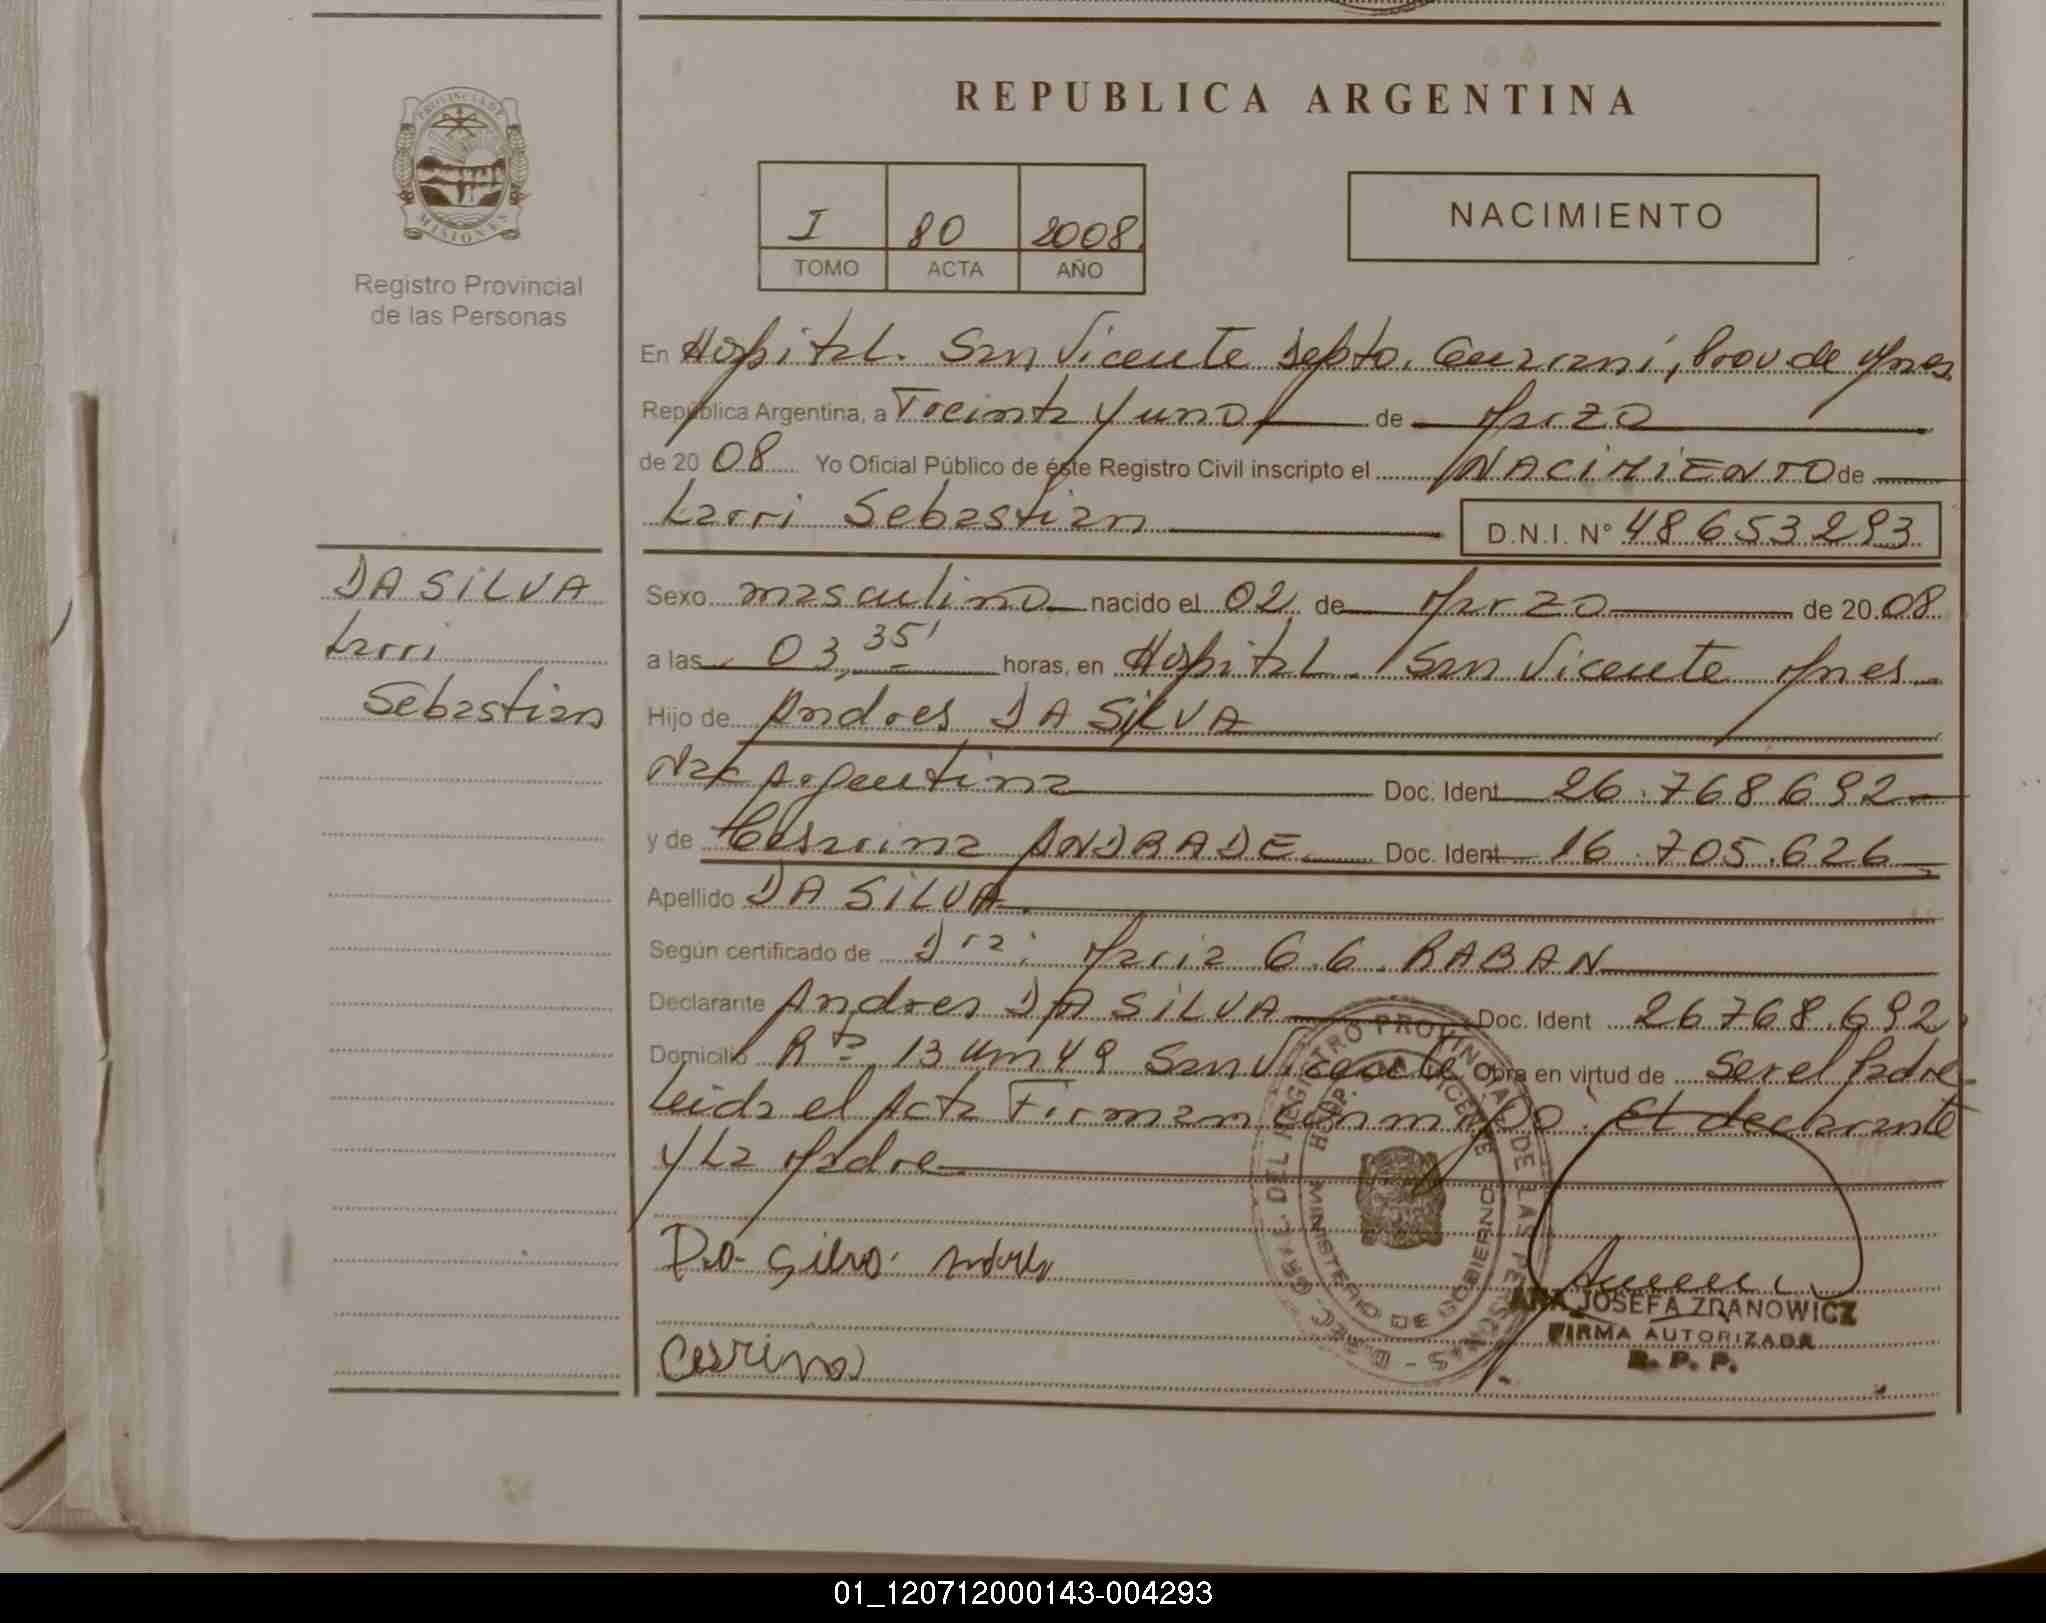 REPUBLICA ARGENTINA
PROVINCIA DE
MISIONES
Registro Provincial
de las Personas
I 80 2008
TOMO ACTA AÑO
NACIMIENTO
En Hospital. San Vicente Depto. Guarani, Prov de Mnes
República Argentina, a Treinta y uno de Marzo
de 20 08 Yo Oficial Público de éste Registro Civil inscripto el NACIMIENTO de
Larri Sebastian D.N.I. N° 48653293
DA SILVA
Larri
Sebastian
Sexo masculino nacido el 02 de Marzo de 20 08
a las 03,35' horas, en Hospital. San Vicente Mnes
Hijo de Andres DA SILVA
Nac Argentina Doc. Ident 26.768692
y de Cesarina ANDRADE Doc. Ident 16.705.626
Apellido DA SILVA
Según certificado de Dra: Maria G.G. RABAN
Declarante Andres DA SILVA Doc. Ident 26768.692
Domicilio Rta 13 Km 49 San Vicente Obra en virtud de ser el Padre
Leida el Acta Firman conmigo. El declarante
y La Madre
Da Silva
Cesrina
REGISTRO PROVINCIAL DE LAS PERSONAS
HOSP. SAN VICENTE
MINISTERIO DE GOBIERNO
ANA JOSEFA ZDANOWICZ
FIRMA AUTORIZADA
R. P. P.
01_120712000143-004293